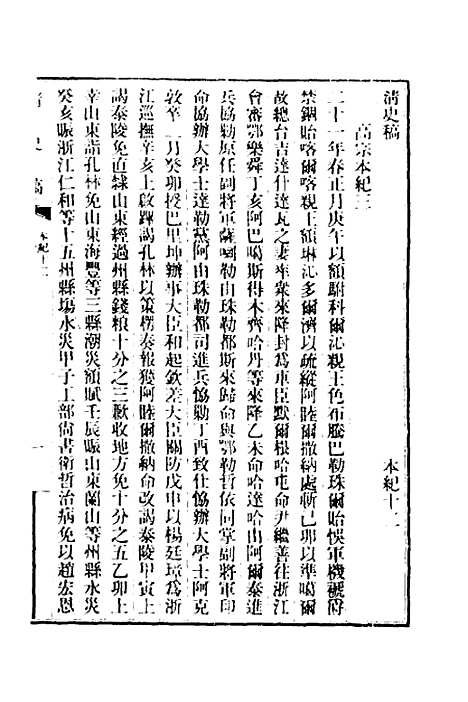 清史稿　本紀十二
高宗本紀三
二十一年春正月庚午以額駙科爾沁親王色布騰巴勒珠爾貽悞軍機褫爵
禁錮貽喀爾喀親王額琳沁多爾濟以疏縱阿睦爾撒納處斬己卯以準噶爾
故總台吉達什達瓦之妻率衆來降封爲車臣默爾根哈屯命尹繼善往浙江
會審鄂樂舜丁亥阿巴噶斯得木齊哈丹等來降乙未命哈達哈由阿爾泰進
兵協勦原任副將軍薩喇勒由珠勒都斯來歸命與鄂勒哲依同掌副將軍印
命協辦大學士達勒黨阿由珠勒都司進兵協勦丁酉致仕協辦大學士阿克
敦卒二月癸卯授巴里坤辦事大臣和起欽差大臣關防戊申以楊廷璋爲浙
江巡撫辛亥上啟蹕謁孔林以策楞奏報獲阿睦爾撒納命改謁泰陵甲寅上
謁泰陵免直隸山東經過州縣錢糧十分之三歉收地方免十分之五乙卯上
幸山東詣孔林免山東海豐等三縣潮災額賦壬辰賑山東蘭山等州縣水災
癸亥賑浙江仁和等十五州縣場水災甲子工部尚書衛哲治病免以趙宏恩
清史稿　本紀十二　一